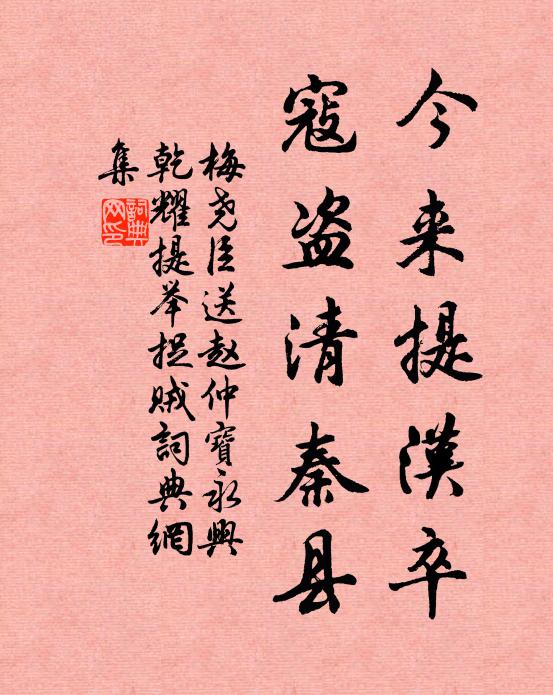 今来提漢卒
寇盗清秦县
梅尧臣送赵仲寶永興
乾耀提举捉贼詞典網
集
詞典网印